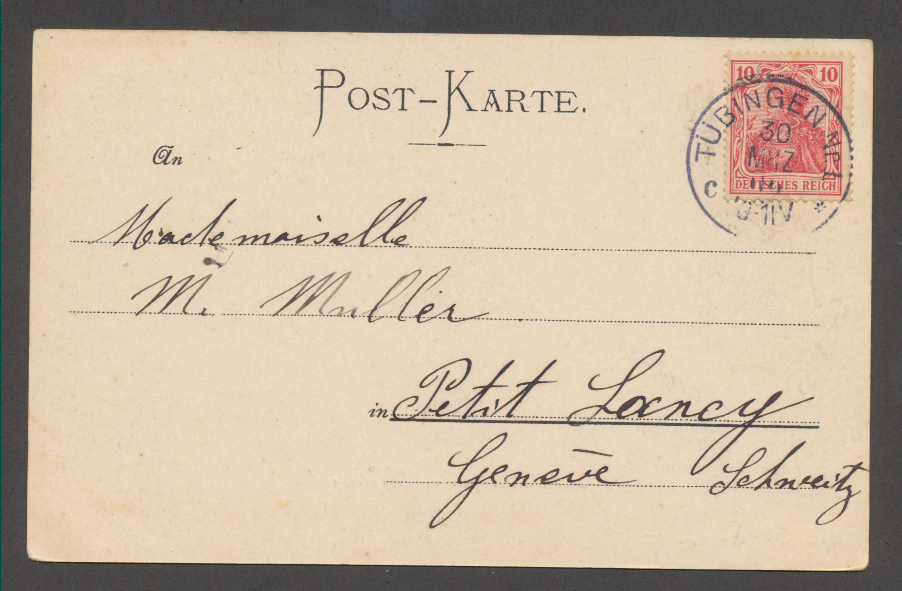 POST-KARTE.
10 10
TÜBINGEN Nr.1
30
MRZ
C *
DEUTSCHES REICH
An
Mademoiselle
M. Muller
in Petit Lancy
Genève Schweitz